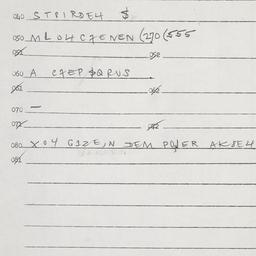 040 STPIRDE4 $
050 MLO4C7ENEN (270 (555
051 052
060 A C7EP $QRUS
061 062
070 —
071 072
080 XO4 G1ZE,N DEM POWER AKDE4
081